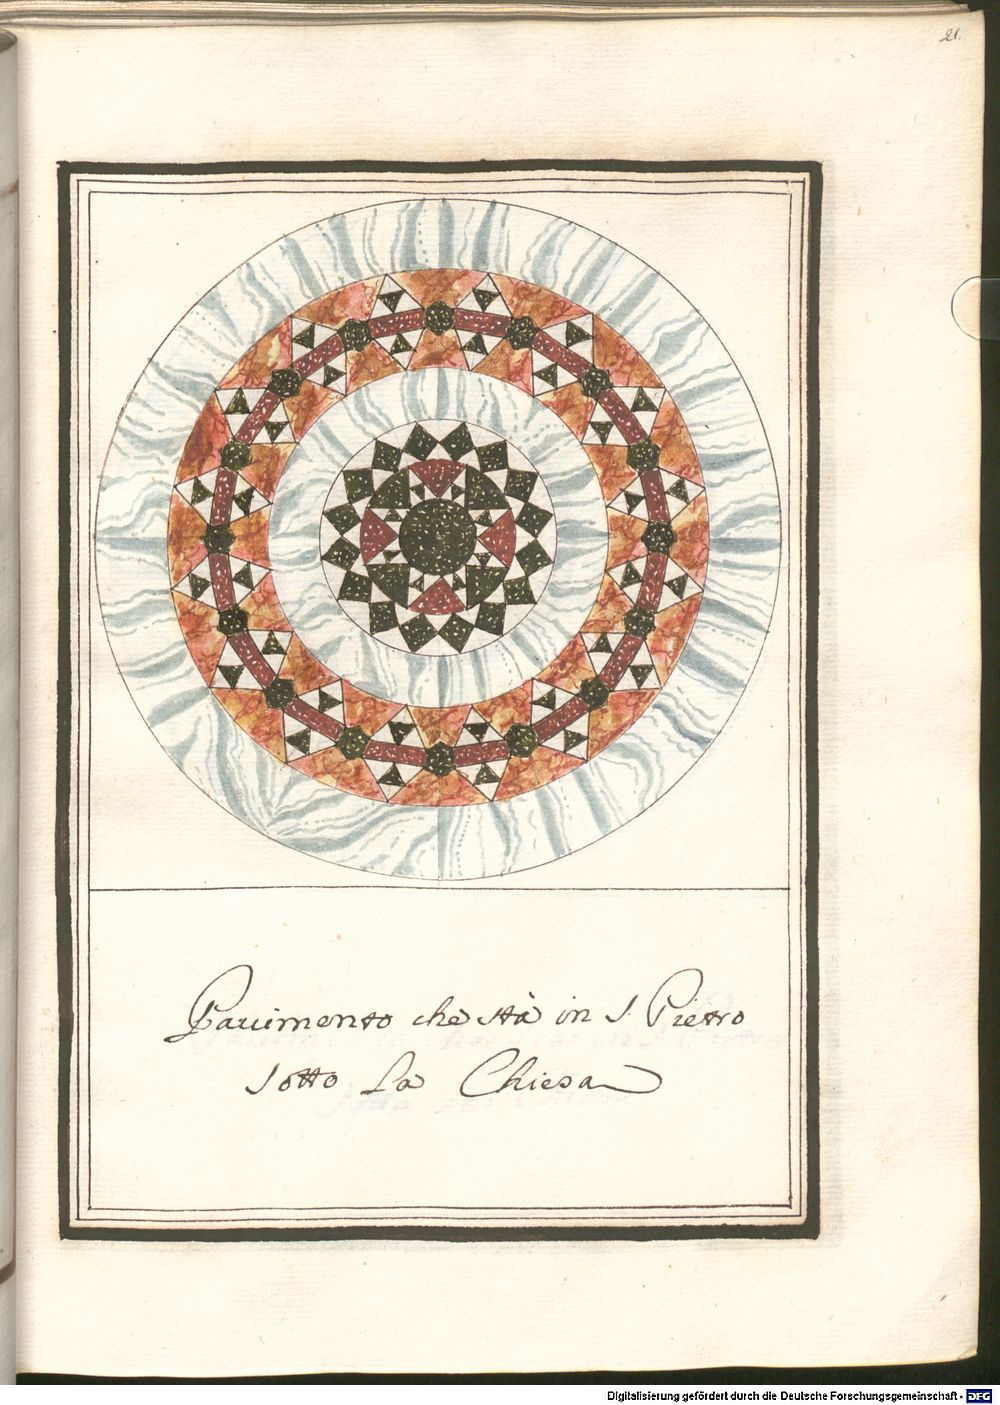 21.
Pauimento che stà in S. Pietro
sotto La Chiesa
Digitalisierung gefördert durch die Deutsche Forschungsgemeinschaft - DFG